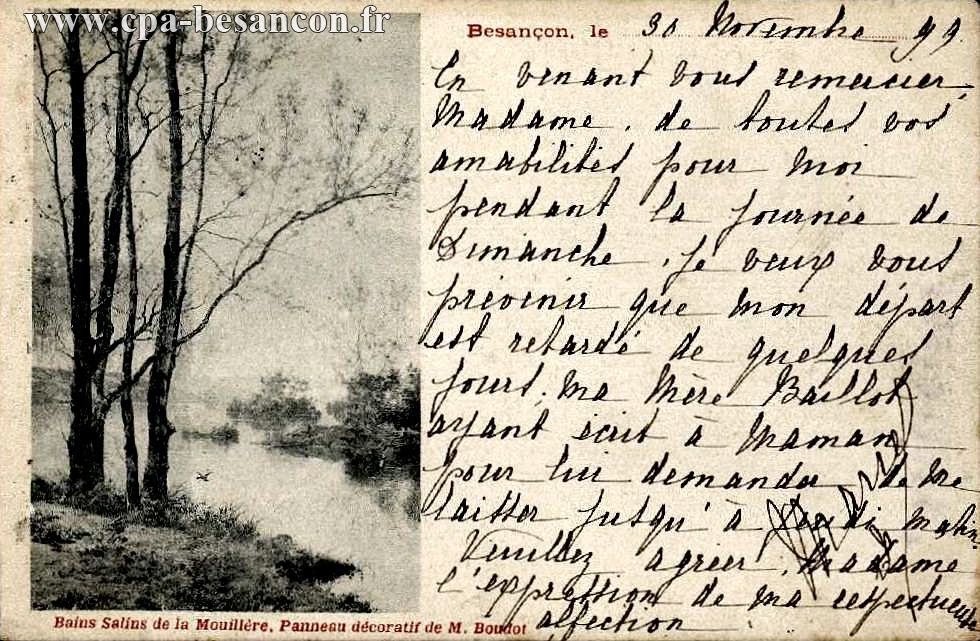 www.cpa-besancon.fr
Besançon, le 30 Novembre 99.
En venant vous remercier,
Madame, de toutes vos
amabilités pour moi
pendant la journée de
Dimanche, je veux vous
prévenir que mon départ
est retardé de quelques
jours, ma Mère Baillot
ayant écrit à Maman
pour lui demander de me
laisser jusqu'à Jeudi matin
Veuillez agréer, Madame
l'expression de ma respectueuse
affection.
Bains Salins de la Mouillère, Panneau décoratif de M. Boudot